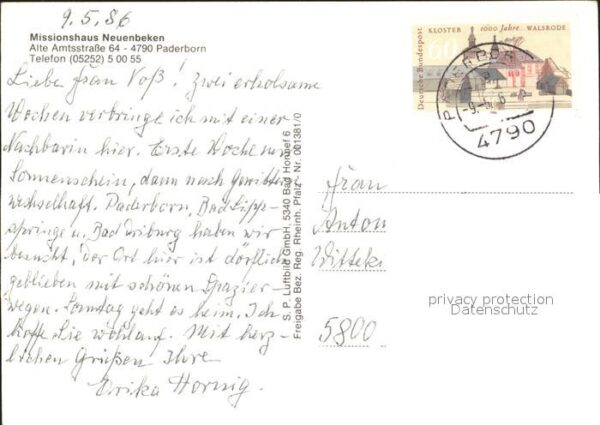 9.5.86
Missionshaus Neuenbeken
Alte Amtsstraße 64 - 4790 Paderborn
Telefon (05252) 5 00 55
Liebe Frau Voß! Zwei erholsame
Wochen verbringe ich mit einer
Nachbarin hier. Erste Woche nur
Sonnenschein, dann nach Gewitter
wechselhaft. Paderborn, Bad Lipp-
springe u. Bad Driburg haben wir
besucht, der Ort hier ist dörflich
geblieben mit schönen Spazier-
wegen. Sonntag geht es heim. Ich
hoffe Sie wohlauf. Mit herz-
lichen Grüßen Ihre
Erika Hornig.
S. P. Luftbild GmbH, 5340 Bad Honnef 6
Freigabe Bez. Reg. Rheinh. Pfalz Nr. 001381/0
Deutsche Bundespost
60
KLOSTER 1000 Jahre WALSRODE
PADERBORN
4790
Frau
Anton
Witteki
5800
privacy protection
Datenschutz